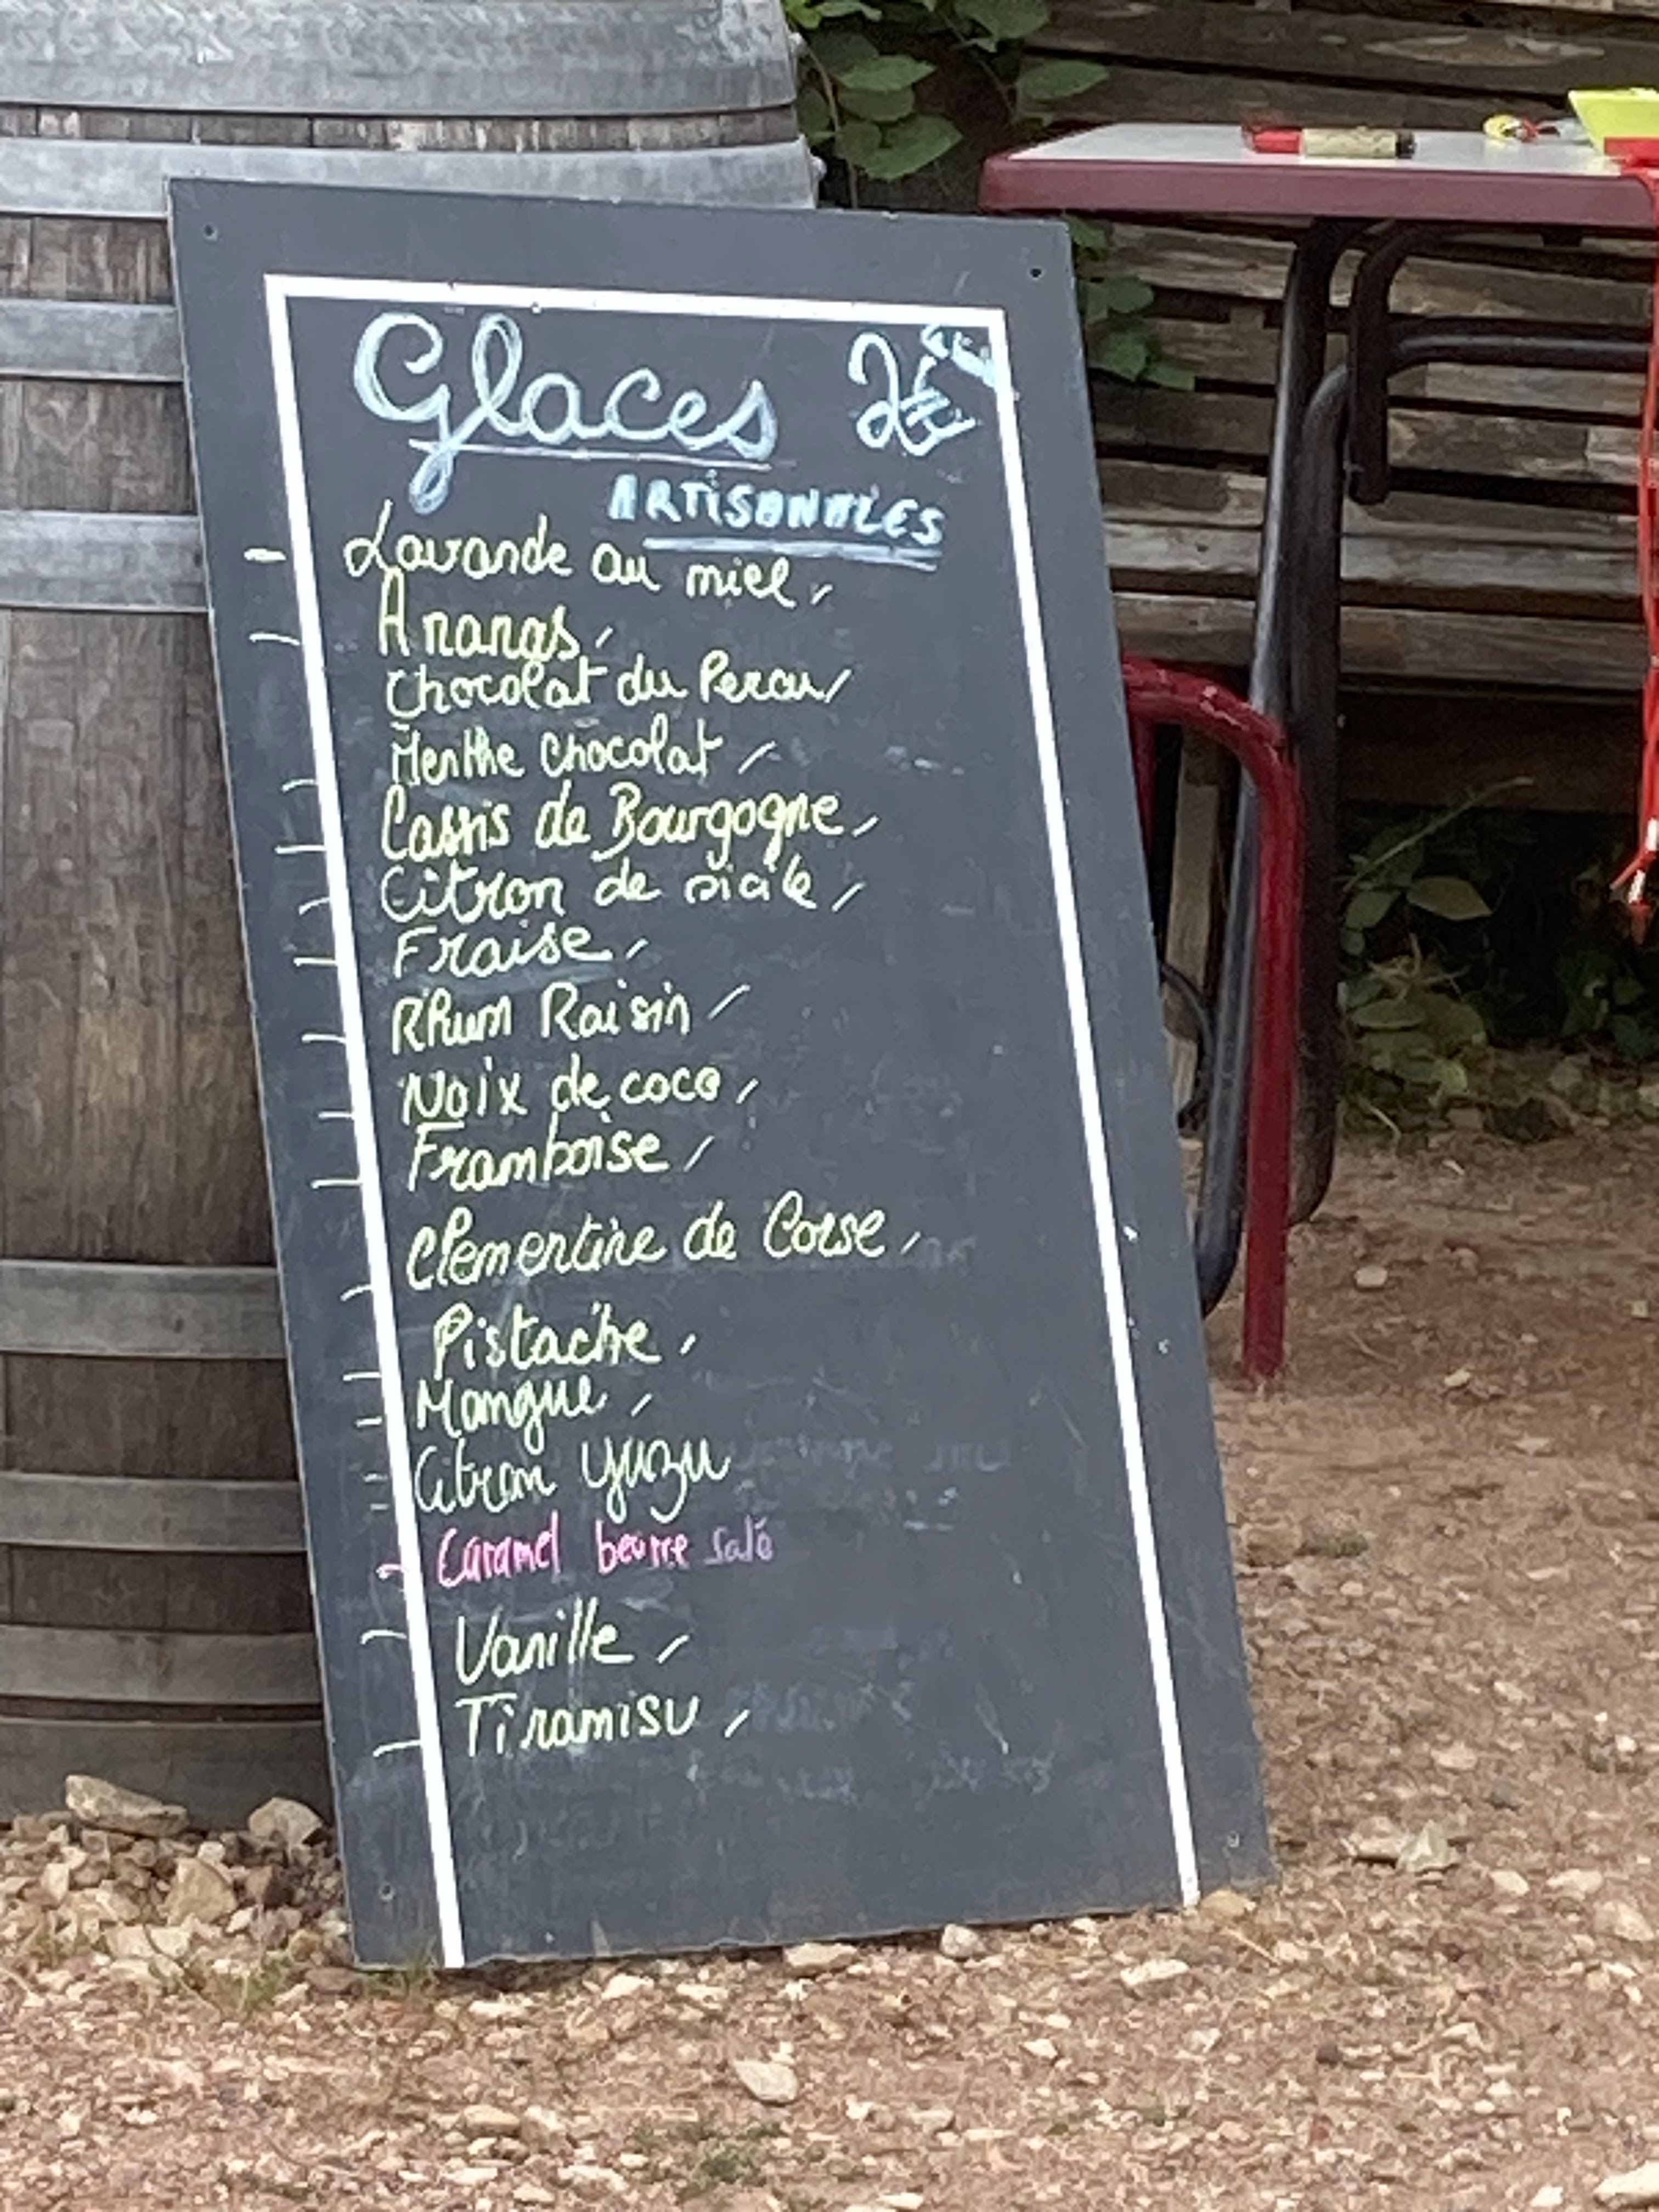 Glaces 2€
ARTISANALES
Lavande au miel,
Ananas,
Chocolat du Perou,
Menthe chocolat,
Cassis de Bourgogne,
Citron de sicile,
Fraise,
Rhum Raisin,
Noix de coco,
Framboise,
Clementine de Corse,
Pistache,
Mangue,
Citron yuzu
Caramel beurre salé
Vanille,
Tiramisu,